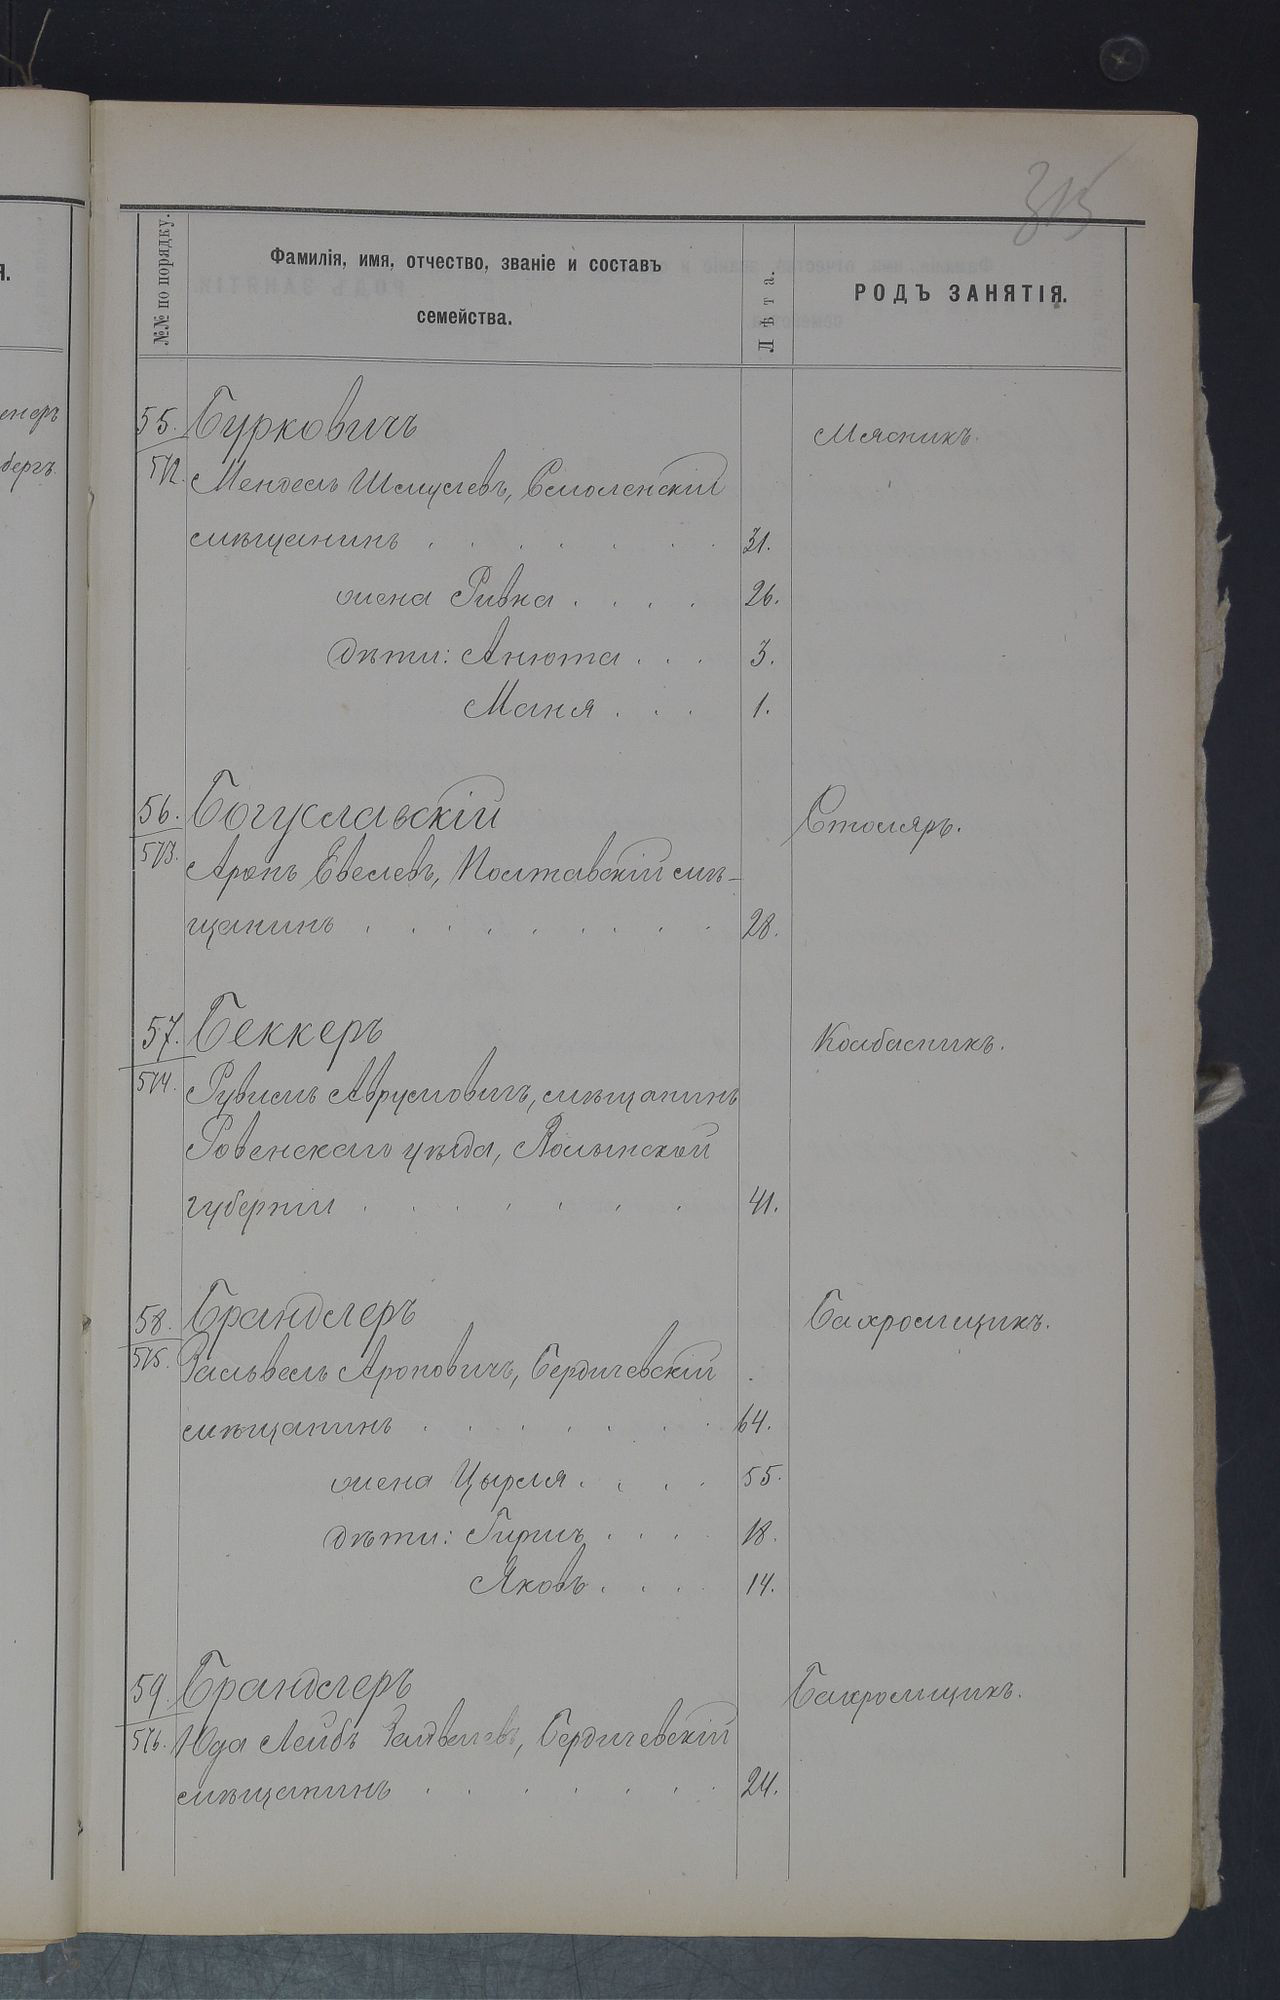 315
№№ по порядку.
Фамилія, имя, отчество, званіе и составъ
семейства.
Лѣта.
РОДЪ ЗАНЯТІЯ.
я.
енеръ
бергъ
55. Бурковичъ Мясникъ.
512. Мендель Шмуелевъ, Смоленскій
мѣщанинъ . . . . . . . 31.
жена Ривка . . . . 26.
дѣти: Анюта . . . 3.
Маня . . . 1.
56. Богуславскій Столяръ.
513. Аронъ Евелевъ, Полтавскій мѣ-
щанинъ . . . . . . . . . 28.
57. Беккеръ Колбасникъ.
514. Рувимъ Аврумовичъ, мѣщанинъ
Ровенскаго уѣзда, Волынской
губерніи . . . . . . . 41.
58. Брандлеръ Бахромщикъ.
515. Зальвель Ароновичъ, Бердичевскій
мѣщанинъ . . . . . . . 64.
жена Цырля . . . . 55.
дѣти: Гиршъ . . . . 18.
Яковъ . . . . 14.
59. Брандлеръ Бахромщикъ.
516. Юда Лейбъ Зальвелевъ, Бердичевскій
мѣщанинъ . . . . . . . 24.